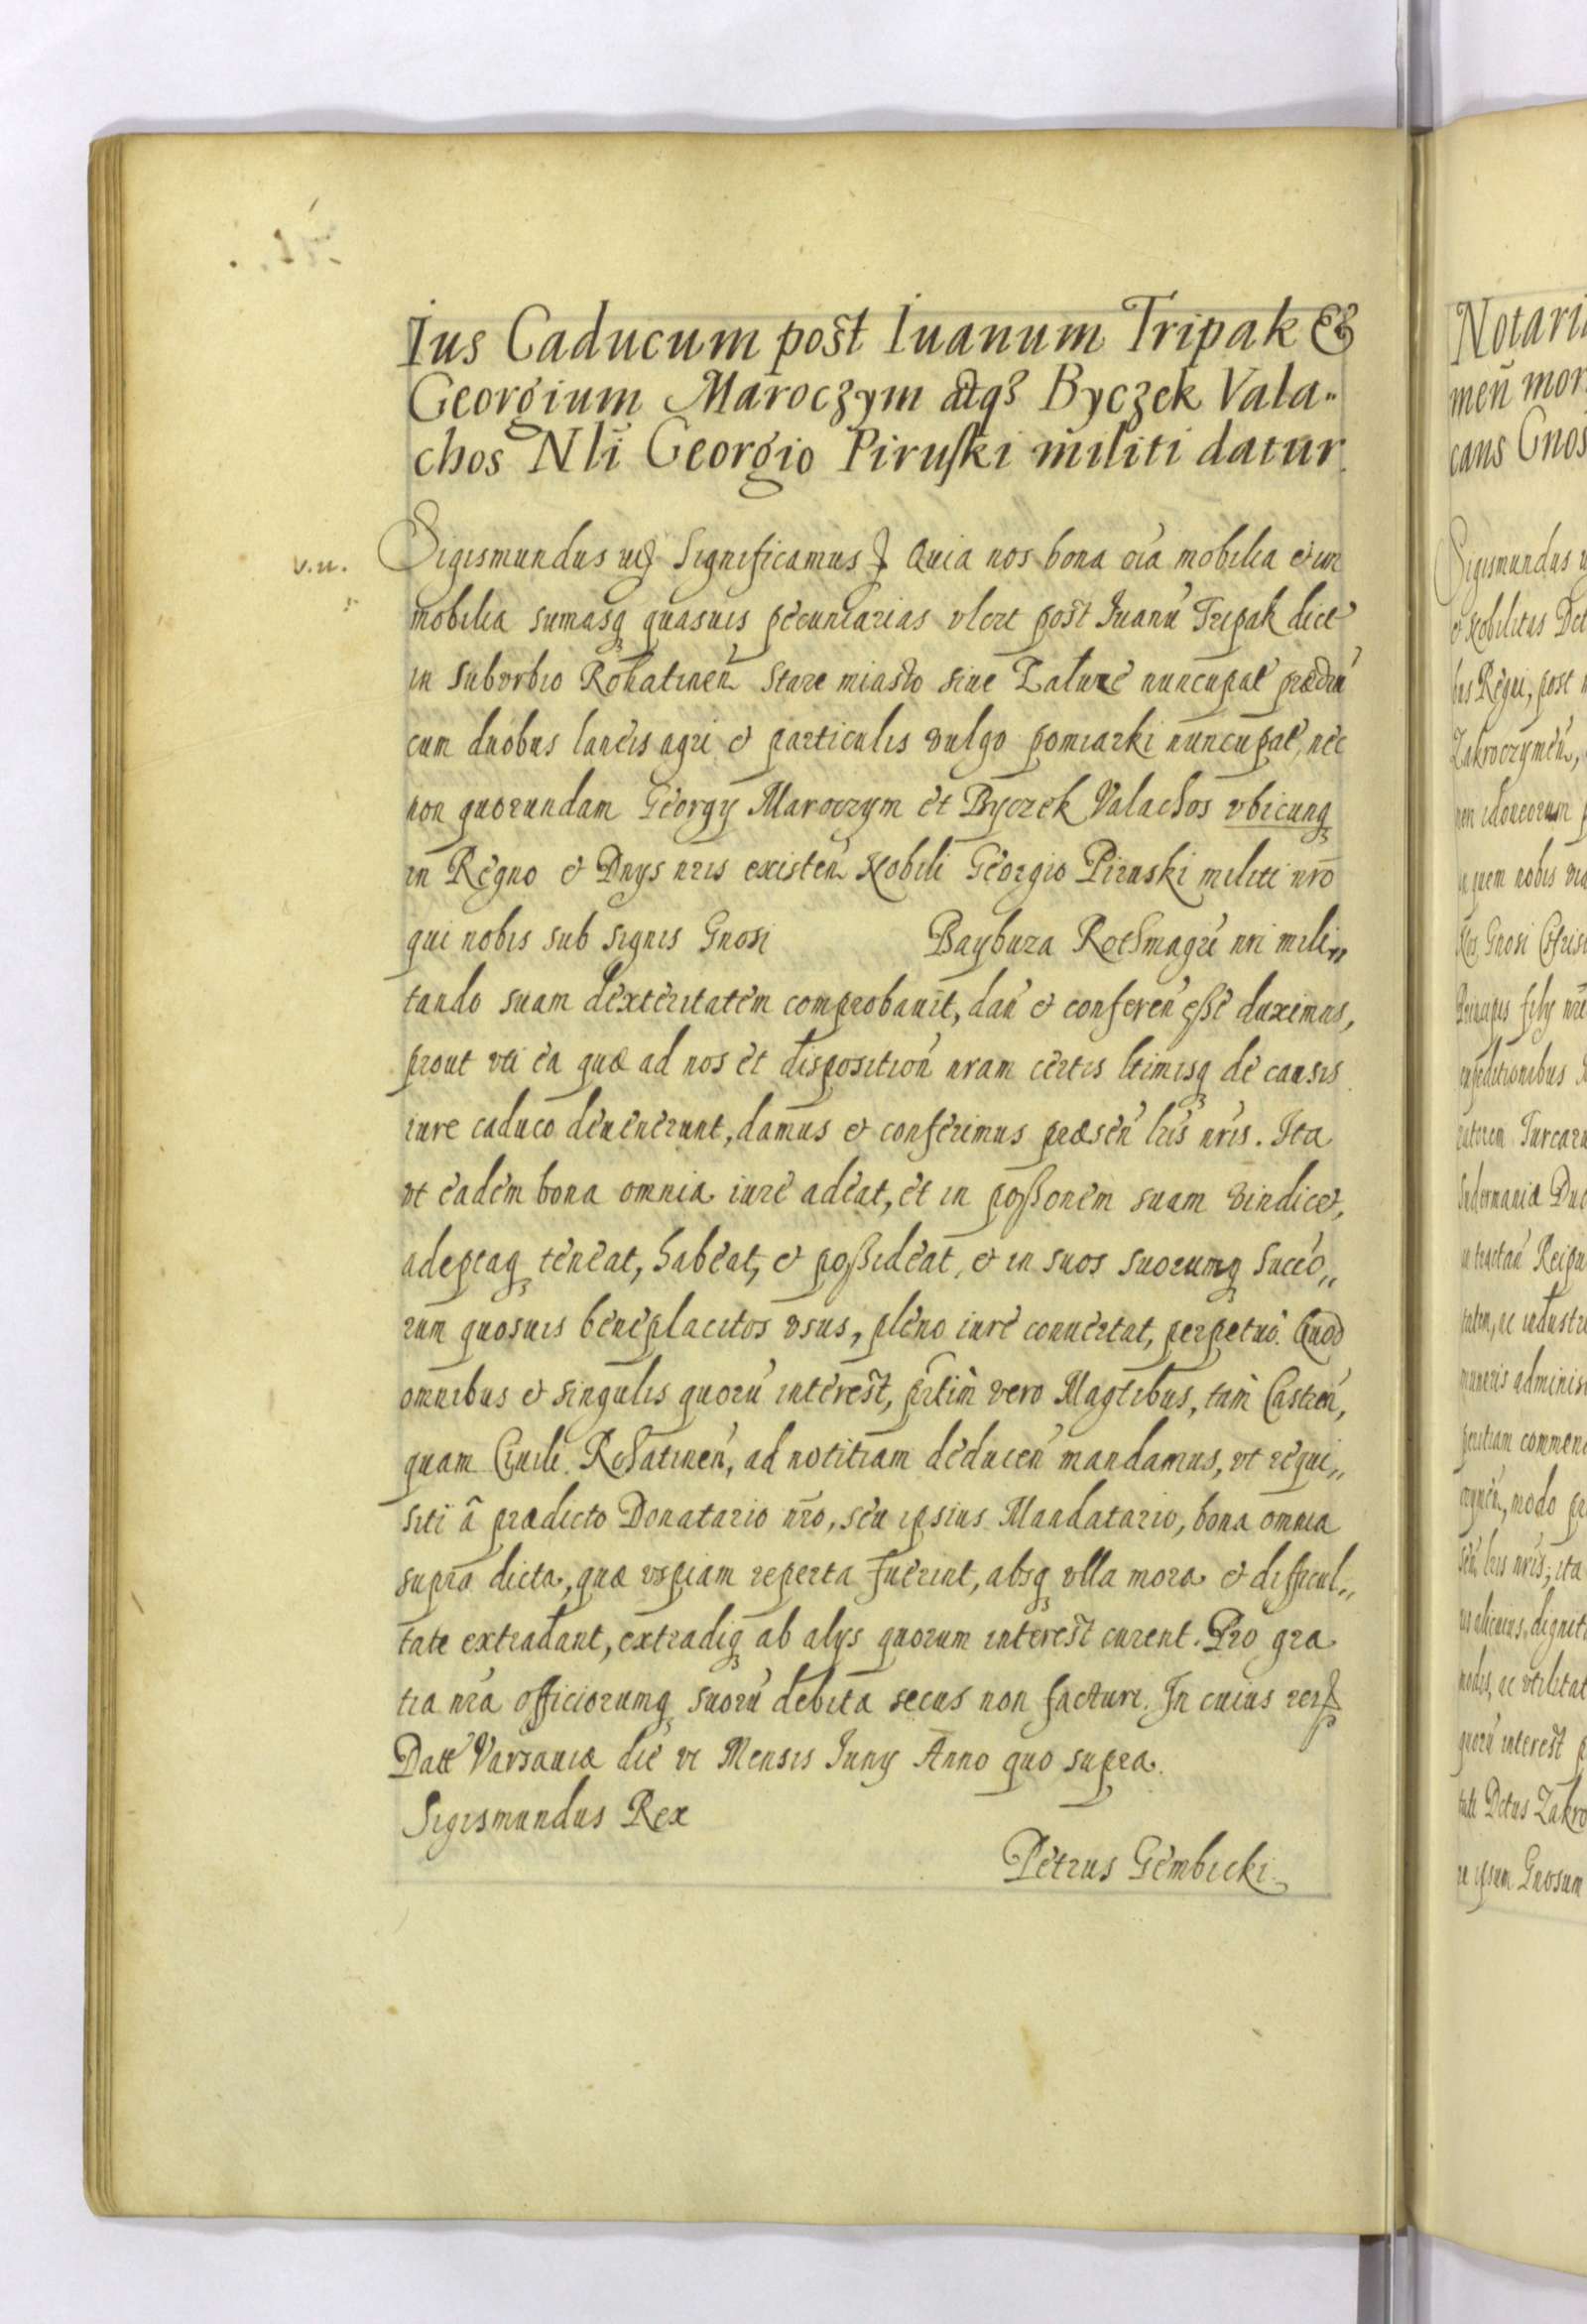 Ius Caducum post Iuanum Tripak &
Georgium Maroczym atq3 Byczek Vala„
chos Nli Georgio Piruski militi datur.
v.u.
Sigismundus Significamus Quia nos bona oia mobilia et im
mobilia sumasq quasuis pecuniarias vlcrt post Iuanu Tripak dict
in suburbio Rohatinen Stare miasto siue nuncupat prædiu
cum duobus laneis agri et particulis vulgo pomiarki nuncupat, nec
non quorundam Georgy Maroczym et Byczek Valachos vbicunq
in Regno et Dnys nris existen Nobili Georgio Piruski militi nro
qui nobis sub signis Gnosi Baybuza Rothmagri nri mili„
tando suam dexteritatem comprobauit, dan et conferen esse duximus,
prout uti ea quæ ad nos et disposition nram certis ltimisq de causis
iure caduco deuenerunt, damus et conferimus præsen lris nris. Ita
vt eadem bona omnia iure adeat, et in possonem suam vindicet,
adeptaq teneat, habeat, et possideat, et in suos suorumq succo„
rum quosuis beneplacitos vsus, pleno iure conuertat, perpetuo. Quod
omnibus et singulis quoru interest, prtim vero Magtibus, tam Castren,
quam Ciuili Rohatinen, ad notitiam deducen mandamus, vt requi„
siti â prædicto Donatario nro, seu ipsius Mandatario, bona omnia
supra dicta, quæ vspiam reperta fuerint, absq vlla mora et difficul„
tate extradant, extradiq ab alys quorum interest curent. Pro gra
tia nra officiorumq suoru debita secus non facturi. In cuius rei
Datt Varsauiæ die vi Mensis Iuny Anno quo supra.
Sigismundus Rex
Petrus Gembicki.
Notari
men mor
cans Gnos
Sigismundus
et Nobilitas
Regni, post
Zakroczymen,
nen idoneorum
quem nobis
Gnosi
Principis fily nri
expeditionibus
Turcaru
Sudermaniæ Duc
tractan Reipu
industri
muneris adminis
peritiam commen
modo
lris nris, ita
alicuius, dignit
ac vtilitat
quoru interest
Dctus Zakro
ipsum Gnosum